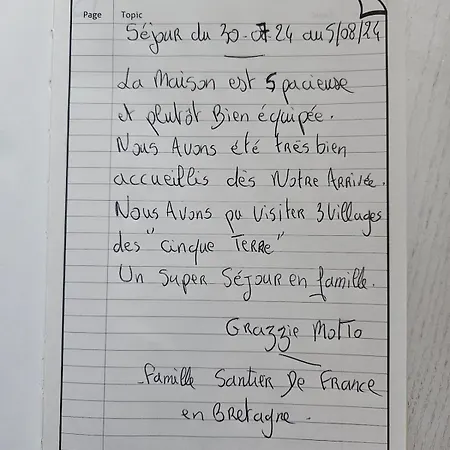 Page Topic
Séjour du 30-07.24 au 5/08/24
La Maison est Spacieuse
et plutôt Bien équipée.
Nous Avons été très bien
accueillis dès Notre Arrivée.
Nous Avons pu Visiter 3 Villages
des "Cinque Terre"
Un Super Séjour en famille.
Grazzie Motto
famille Santier De France
en Bretagne.